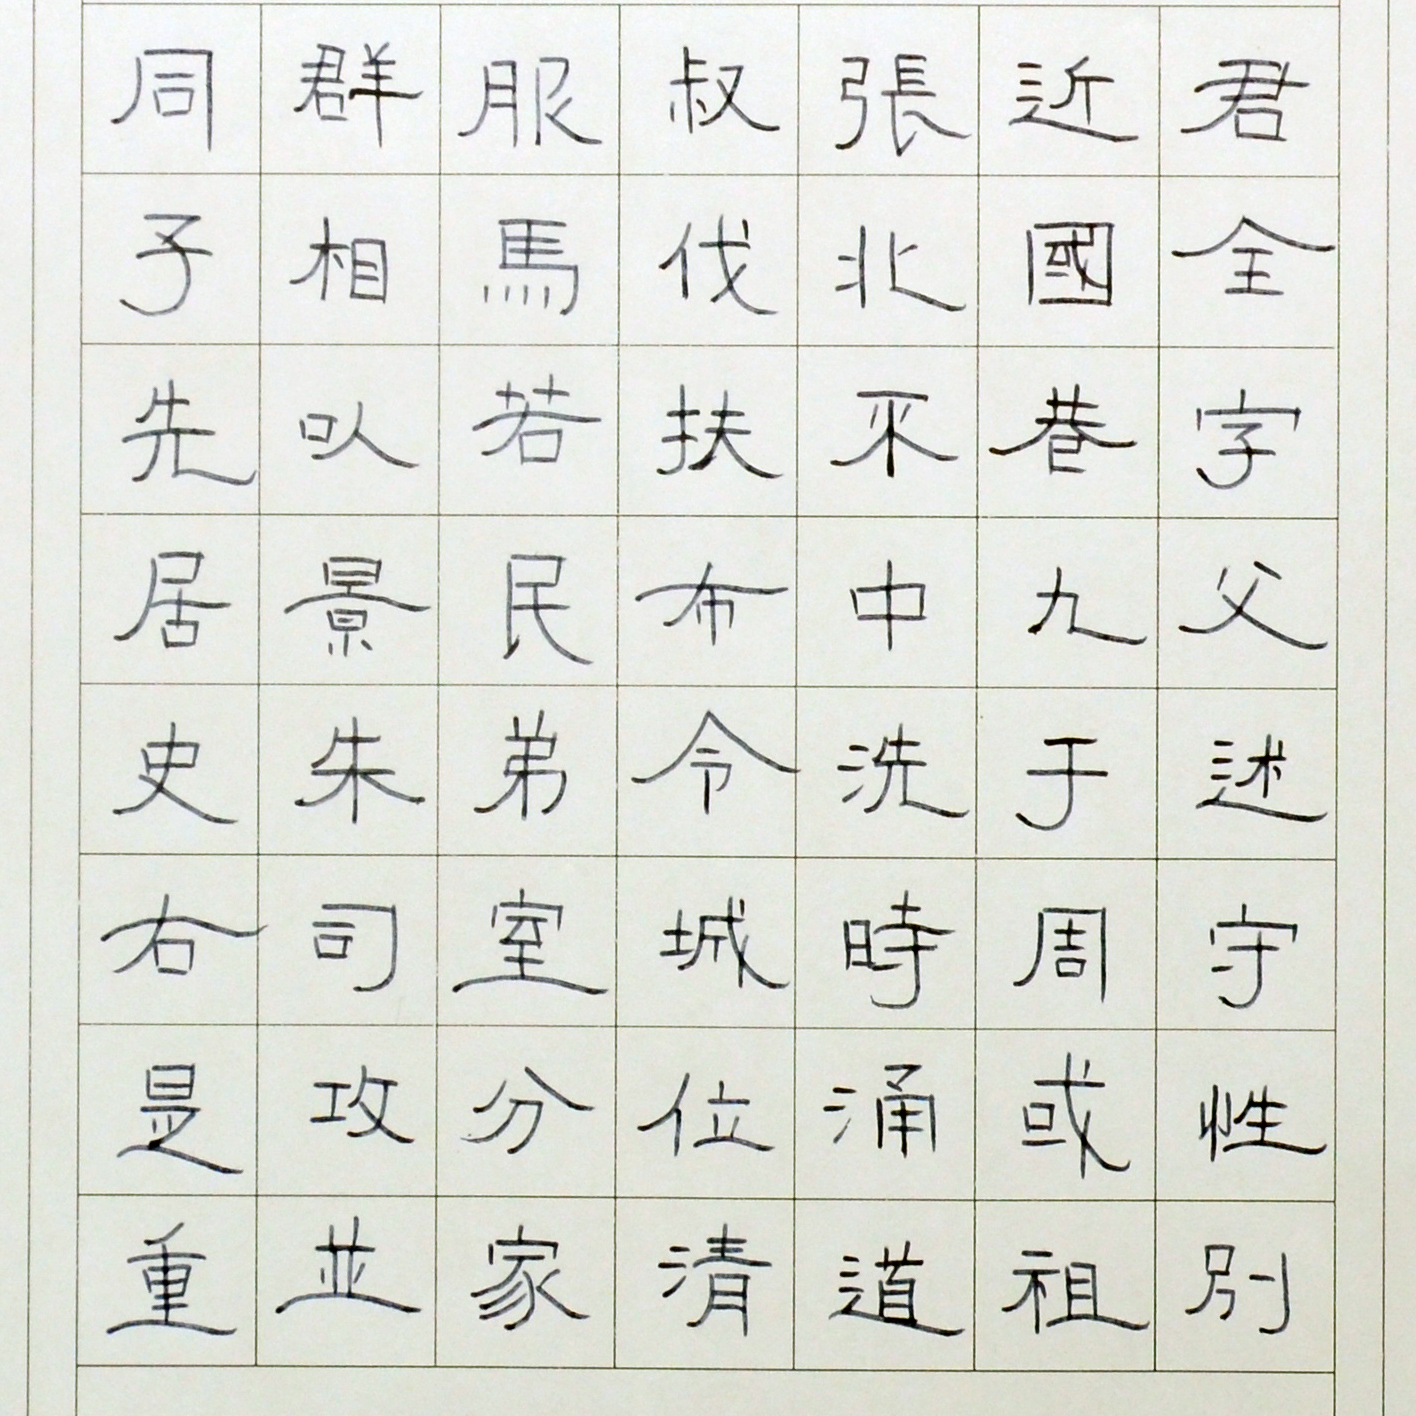 君全字父述守性別
近國巷九于周或祖
張北釆中洗時涌道
叔伐扶布令城位清
服馬若民弟室分家
群相以景朱司攻並
同子先居史右是重